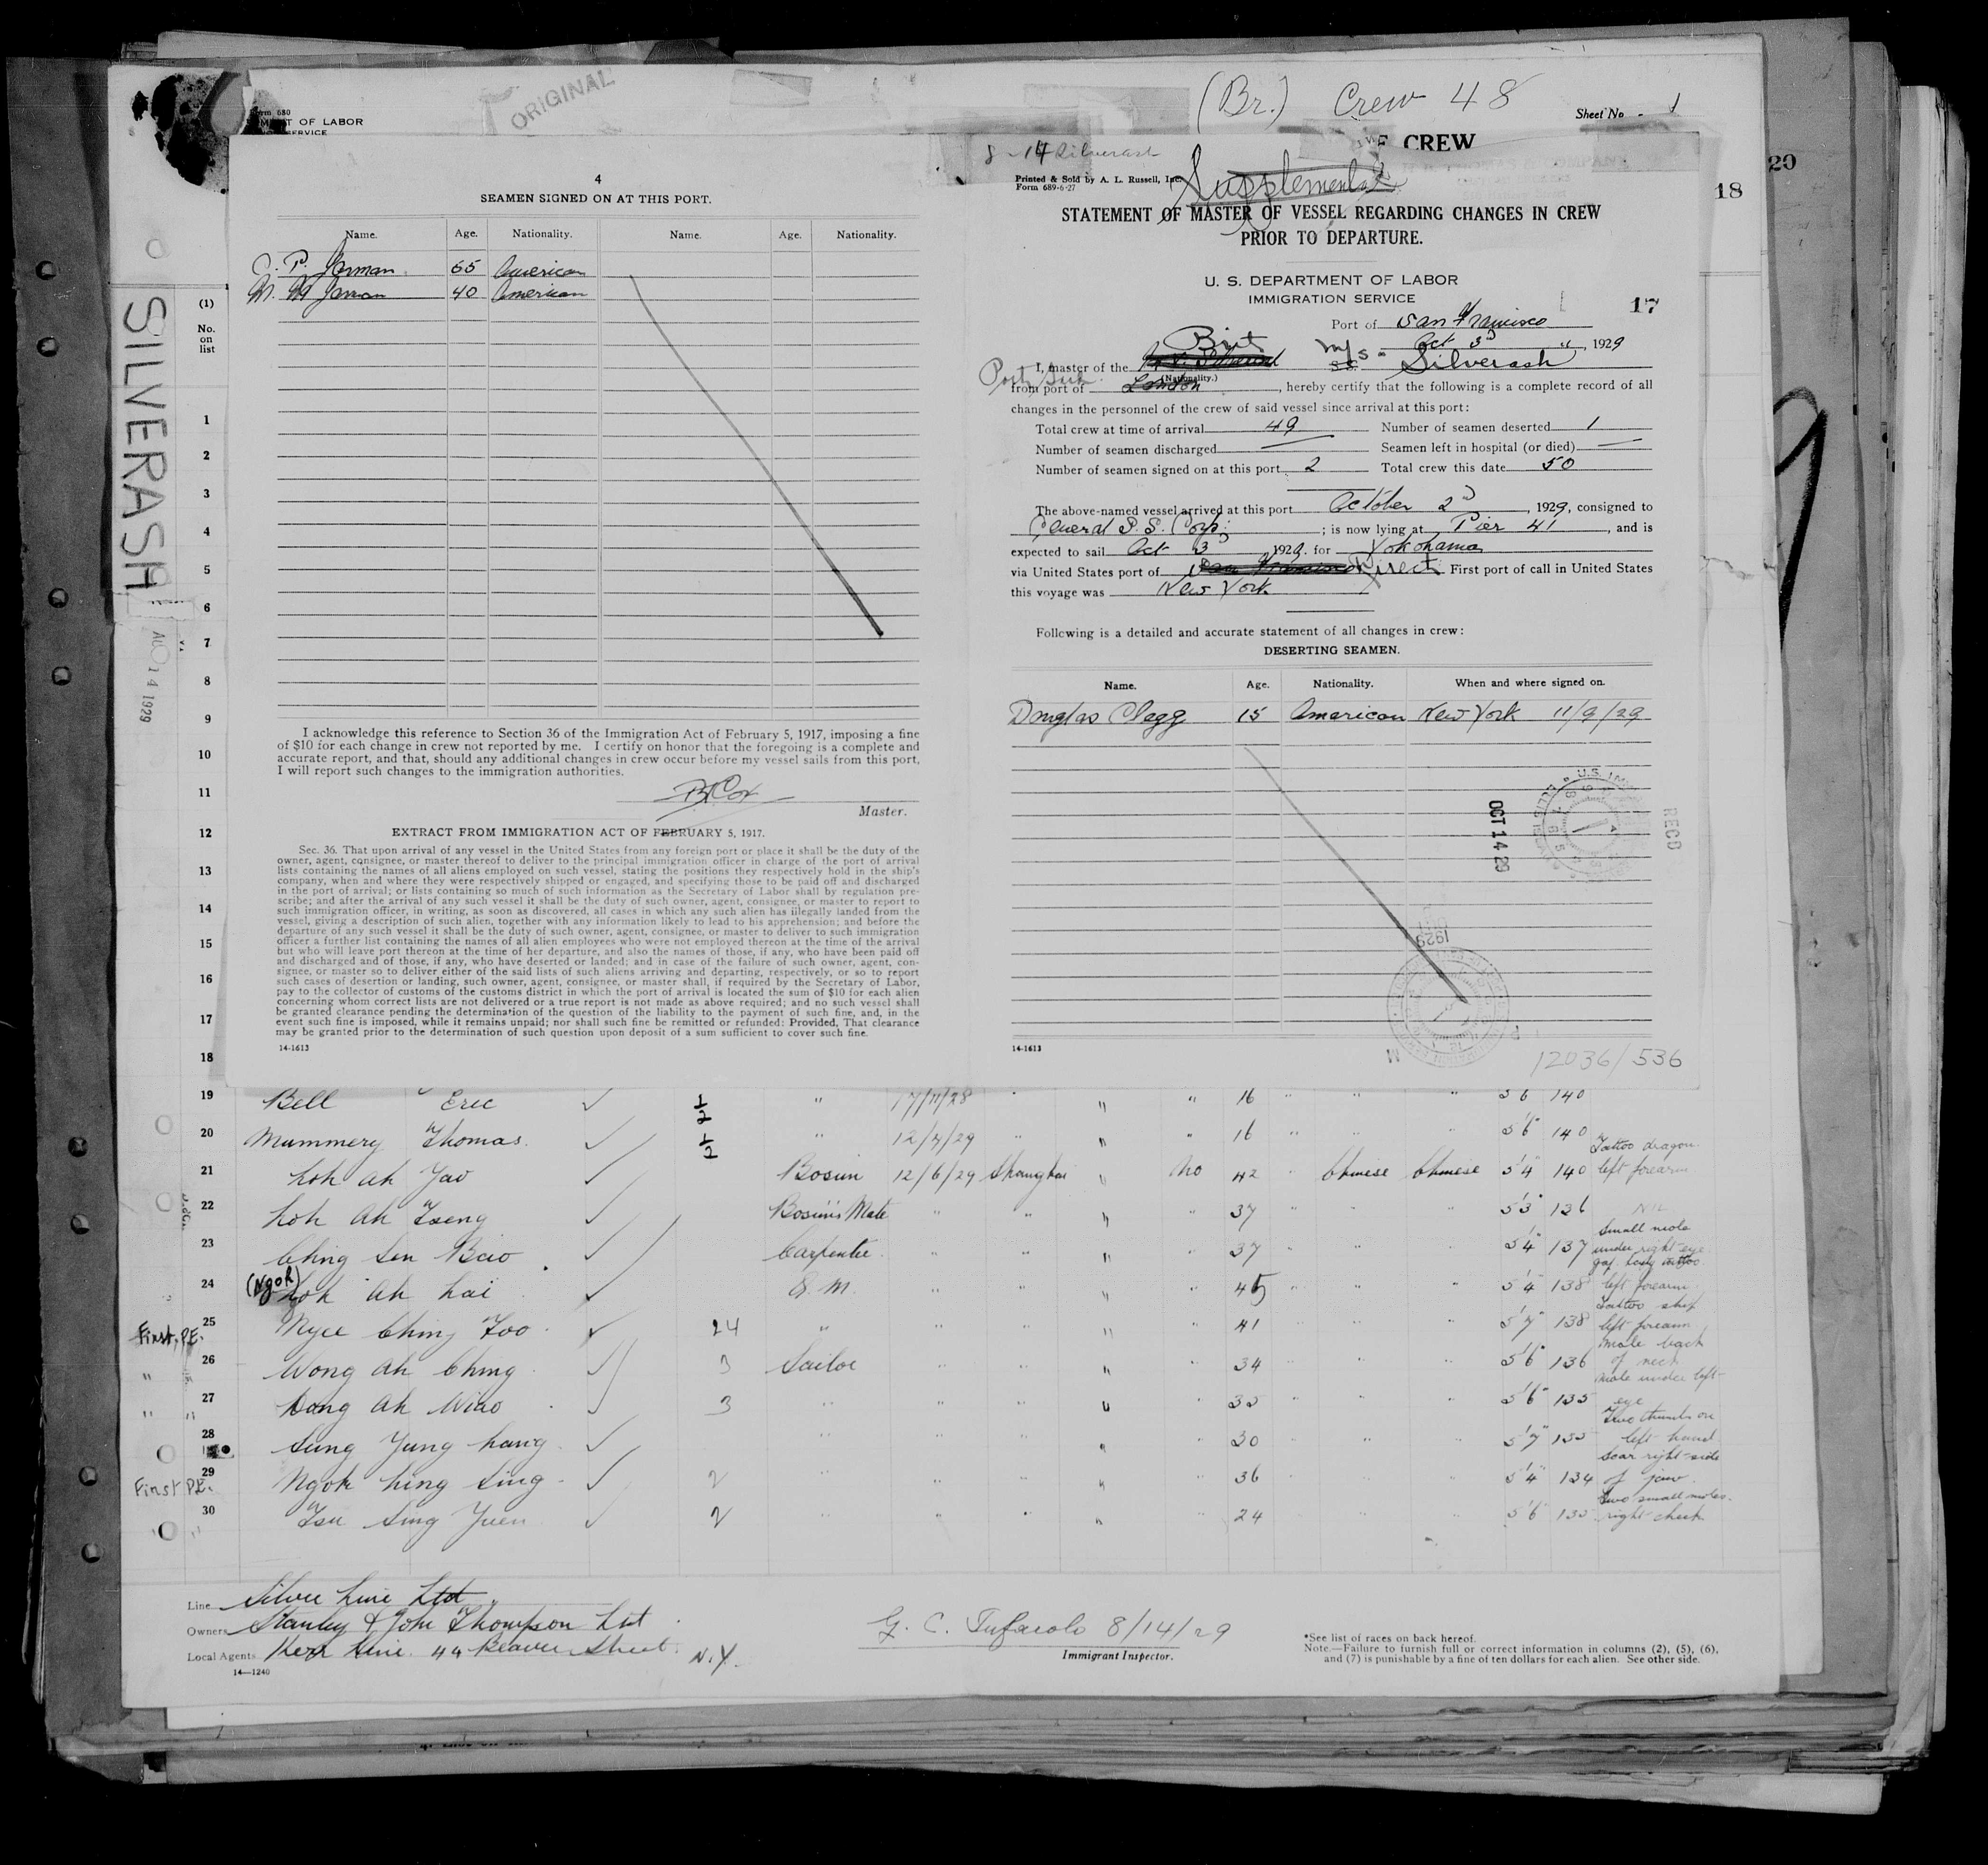 ORIGINAL
(Br.) Crew 48
Sheet No. 1
Form 680
OF LABOR
SERVICE
CREW
20
18
SILVERASH
AUG 14 1929
(1)
No.
on
list
1
2
3
4
5
6
7
8
9
10
11
12
13
14
15
16
17
18
4
SEAMEN SIGNED ON AT THIS PORT.
Name. Age. Nationality. Name. Age. Nationality.
P. Jarman 65 American
M. M. Jarman 40 American
I acknowledge this reference to Section 36 of the Immigration Act of February 5, 1917, imposing a fine
of $10 for each change in crew not reported by me. I certify on honor that the foregoing is a complete and
accurate report, and that, should any additional changes in crew occur before my vessel sails from this port,
I will report such changes to the immigration authorities.
Cox
Master.
EXTRACT FROM IMMIGRATION ACT OF FEBRUARY 5, 1917.
Sec. 36. That upon arrival of any vessel in the United States from any foreign port or place it shall be the duty of the
owner, agent, consignee, or master thereof to deliver to the principal immigration officer in charge of the port of arrival
lists containing the names of all aliens employed on such vessel, stating the positions they respectively hold in the ship's
company, when and where they were respectively shipped or engaged, and specifying those to be paid off and discharged
in the port of arrival; or lists containing so much of such information as the Secretary of Labor shall by regulation pre-
scribe; and after the arrival of any such vessel it shall be the duty of such owner, agent, consignee, or master to report to
such immigration officer, in writing, as soon as discovered, all cases in which any such alien has illegally landed from the
vessel, giving a description of such alien, together with any information likely to lead to his apprehension; and before the
departure of any such vessel it shall be the duty of such owner, agent, consignee, or master to deliver to such immigration
officer a further list containing the names of all alien employees who were not employed thereon at the time of the arrival
but who will leave port thereon at the time of her departure, and also the names of those, if any, who have been paid off
and discharged and of those, if any, who have deserted or landed; and in case of the failure of such owner, agent, con-
signee, or master so to deliver either of the said lists of such aliens arriving and departing, respectively, or so to report
such cases of desertion or landing, such owner, agent, consignee, or master shall, if required by the Secretary of Labor,
pay to the collector of customs of the customs district in which the port of arrival is located the sum of $10 for each alien
concerning whom correct lists are not delivered or a true report is not made as above required; and no such vessel shall
be granted clearance pending the determination of the question of the liability to the payment of such fine, and, in the
event such fine is imposed, while it remains unpaid; nor shall such fine be remitted or refunded: Provided, That clearance
may be granted prior to the determination of such question upon deposit of a sum sufficient to cover such fine.
14-1613
8-14 Silverash
Printed & Sold by A. L. Russell, Inc.
Form 689-6-27
Supplemental
STATEMENT OF MASTER OF VESSEL REGARDING CHANGES IN CREW
PRIOR TO DEPARTURE.
U. S. DEPARTMENT OF LABOR
IMMIGRATION SERVICE
17
Port of San Francisco
Oct 3rd, 1929
I, master of the Brit M/s Silverash
(Nationality.)
from port of London, hereby certify that the following is a complete record of all
changes in the personnel of the crew of said vessel since arrival at this port:
Total crew at time of arrival 49 Number of seamen deserted 1
Number of seamen discharged — Seamen left in hospital (or died) —
Number of seamen signed on at this port 2 Total crew this date 50
The above-named vessel arrived at this port October 2nd, 1929, consigned to
General S. S. Corp.; is now lying at Pier 41, and is
expected to sail Oct 3, 1929. for Yokohama
via United States port of San Francisco Direct First port of call in United States
this voyage was New York
Following is a detailed and accurate statement of all changes in crew:
DESERTING SEAMEN.
Name. Age. Nationality. When and where signed on.
Douglas Clegg 15 American New York 11/9/29
OCT 14 29
REC'D
1929
14-1613
12036/536
19 Bell Eric ½ " 17/11/28 " " " 16 " " " 5'6 140
20 Mummery Thomas ½ " 12/7/29 " " " 16 " " " 5'6" 140
21 Loh Ah Yao Bosun 12/6/29 Shanghai " No 42 " Chinese Chinese 5'4" 140 Tattoo dragon left forearm
22 Loh Ah Tseng Bosun's Mate " " " " 37 " " " 5'3" 136 Nil
23 Ching Sen Bao Carpenter " " " " 37 " " " 5'4" 137 Small mole under right eye
24 (Ngoh) Loh Ah Lai Q.M. " " " " 45 " " " 5'4" 138 left forearm
First P.E. 25 Nyee Ching Foo 24 " " " " " 41 " " " 5'7" 138 Tattoo ship left forearm
" 26 Wong Ah Ching 3 Sailor " " " " 34 " " " 5'6" 136 Mole back of neck
" " 27 Dong Ah Miao 3 " " " " " 35 " " " 5'6" 135 Mole under left eye
28 Sung Yung Kang " " " " " 30 " " " 5'7" 135 Two thumbs on left hand
First P.E. 29 Ngoh Ling Sing 2 " " " " " 36 " " " 5'4" 134 Scar right side of jaw
" " 30 Tsu Sing Yuen 2 " " " " " 24 " " " 5'6" 135 Two small moles right cheek
Line Silver Line Ltd.
Owners Stanley & John Thompson Ltd
Local Agents Kerr Line. 44 Beaver Street. N.Y.
14—1240
G. C. Tufarolo 8/14/29
Immigrant Inspector.
*See list of races on back hereof.
Note.—Failure to furnish full or correct information in columns (2), (5), (6),
and (7) is punishable by a fine of ten dollars for each alien. See other side.